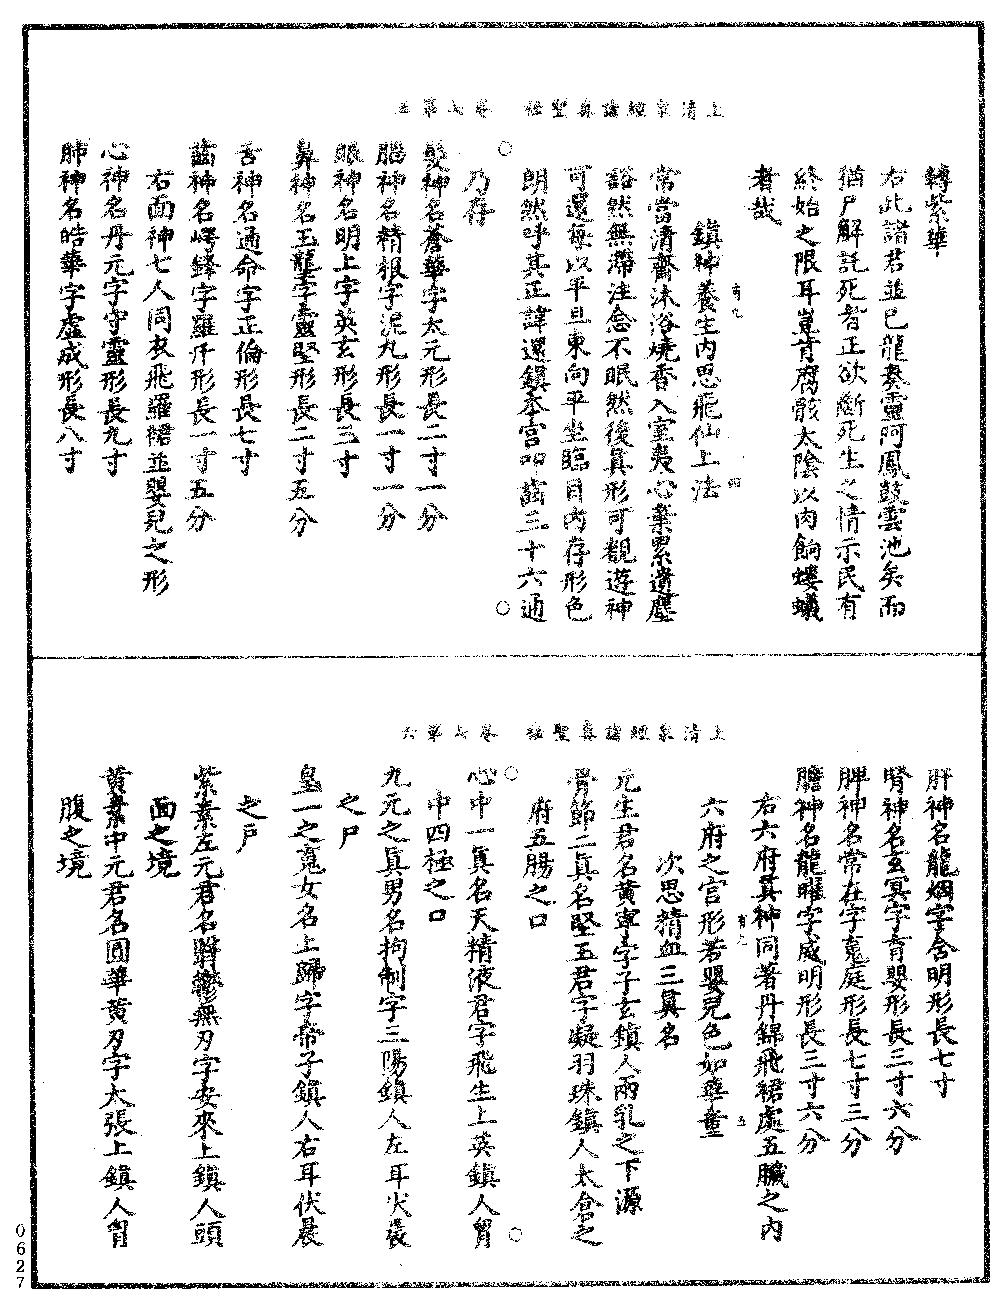 上清眾經諸真聖祕　卷七第五
轉紫華
右此諸君並已龍奏靈阿鳳鼓雲池矣而
猶尸解託死者正欲斷死生之情示民有
終始之限耳豈肯腐骸太陰以肉餉螻蟻
者哉
鎮神養生內思飛仙上法
有九
四
常當清齋沐浴燒香入室夷心棄累遺塵
豁然無滯注念不眠然後真形可覩遊神
可還每以平旦東向平坐臨目內存形色
朗然呼其正諱還鎮本宮叩齒三十六通
乃存
髮神名蒼華字太元形長二寸一分
腦神名精根字泥丸形長一寸一分
眼神名明上字英玄形長三寸
鼻神名玉壟字靈堅形長二寸五分
舌神名通命字正倫形長七寸
齒神名崿鋒字羅千形長一寸五分
右面神七人同衣飛羅裙並嬰兒之形
心神名丹元字守靈形長九寸
肺神名皓華字虛成形長八寸
上清眾經諸真聖祕　卷七第六
肝神名龍烟字含明形長七寸
腎神名玄冥字育嬰形長三寸六分
脾神名常在字魂庭形長七寸三分
膽神名龍曜字威明形長三寸六分
右六府真神同著丹錦飛裙處五臟之內
六府之宮形若嬰兒色如華童
有九
五
次思精血三真名
元生君名黃寧字子玄鎮人兩乳之下源
骨節二真名堅玉君字凝羽珠鎮人太倉之
府五腸之口
心中一真名天精液君字飛生上英鎮人胷
中四極之口
九元之真男名拘制字三陽鎮人左耳伏晨
之尸
皇一之魂女名上歸字帝子鎮人右耳伏晨
之戶
紫素左元君名翳鬱無刃字安來上鎮人頭
面之境
黃素中元君名圓華黃刃字太張上鎮人胷
腹之境
0627